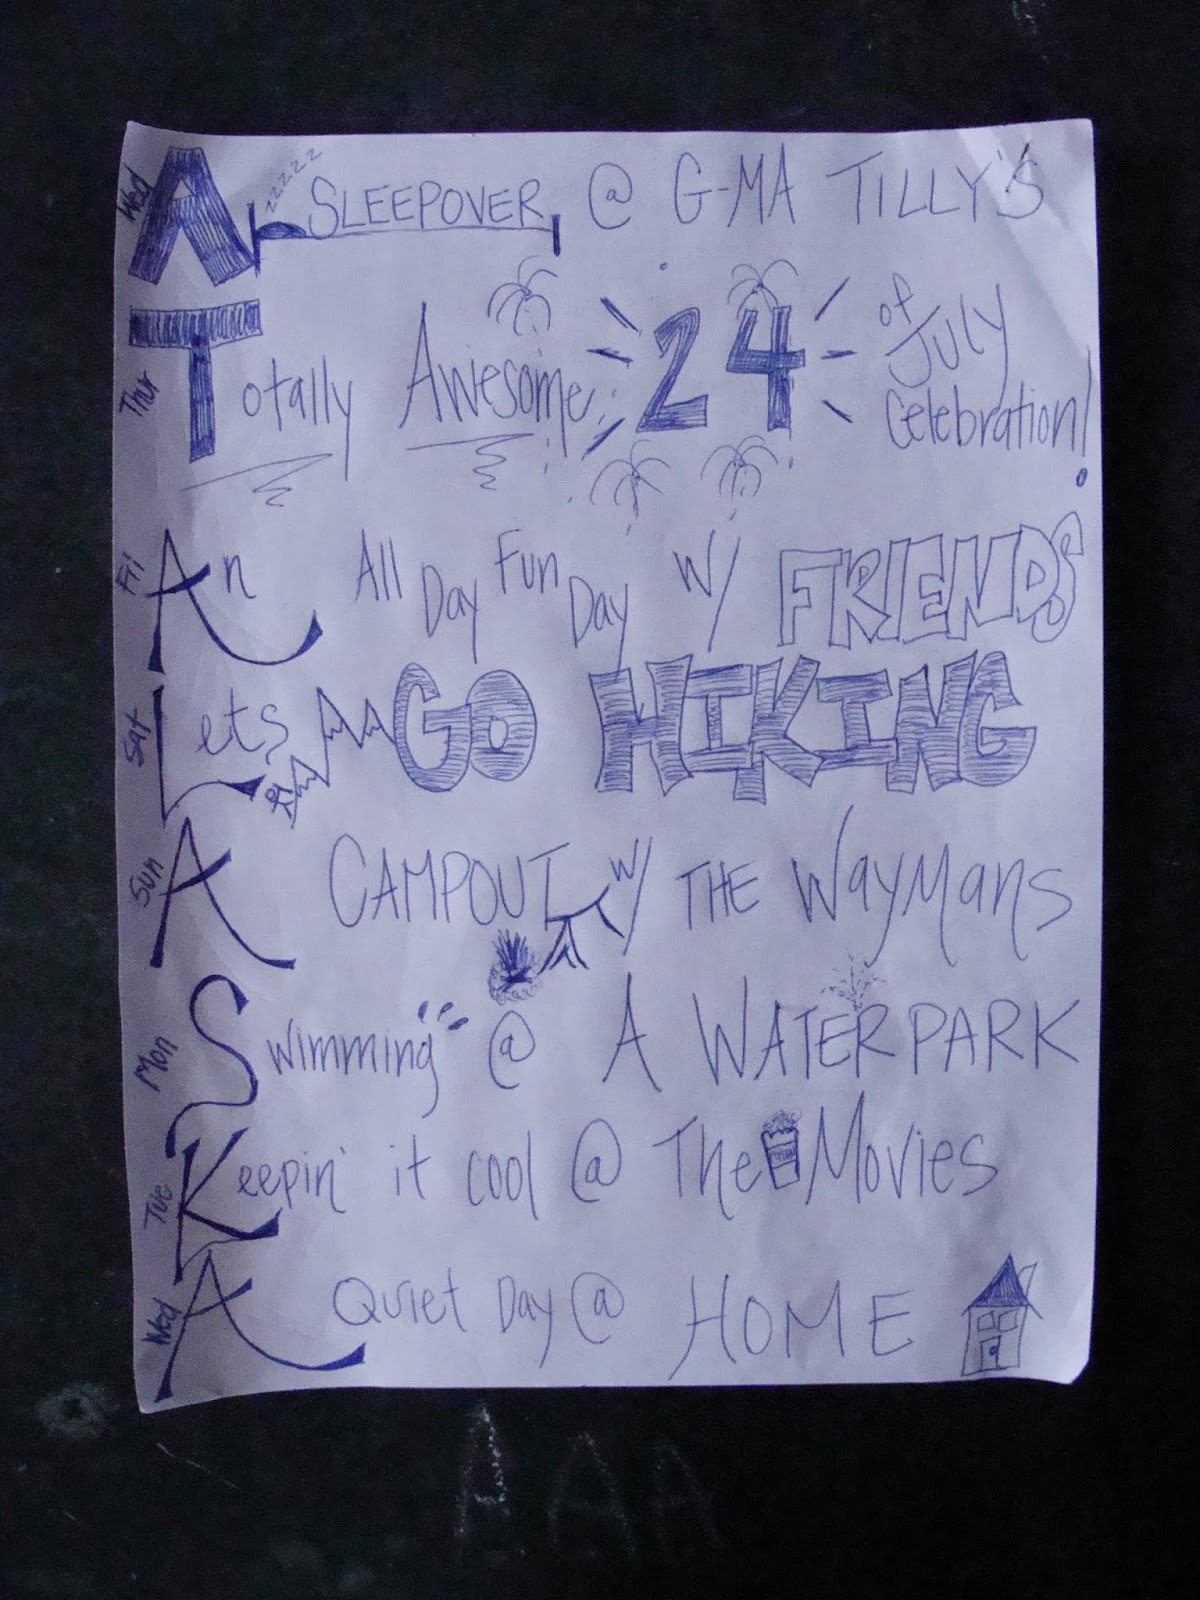 Wed A SLEEPOVER @ G-MA TILLY'S
zzzzz
Thur Totally Awesome 24 of July Celebration!
Fri An All Day Fun Day w/ FRIENDS
SAT Lets GO HIKING
Sun A CAMPOUT w/ THE WayMans
Mon Swimming @ A WATERPARK
Tue Keepin' it cool @ The Movies
Wed A Quiet Day @ HOME
A A A